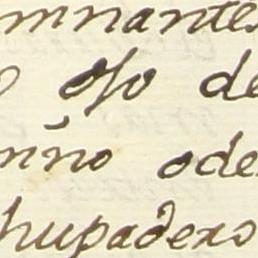 mnantes
Ojo de
nño ode
hupaderos